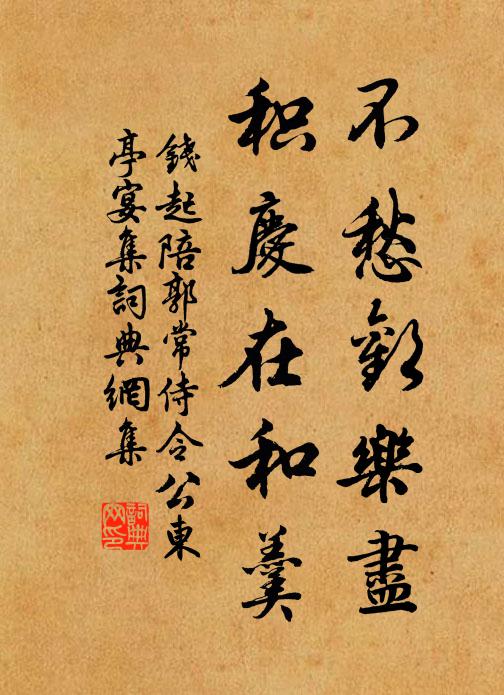 不愁歡樂盡
积慶在和羹
錢起陪郭常侍令公東
亭宴集詞典網集
詞典网印